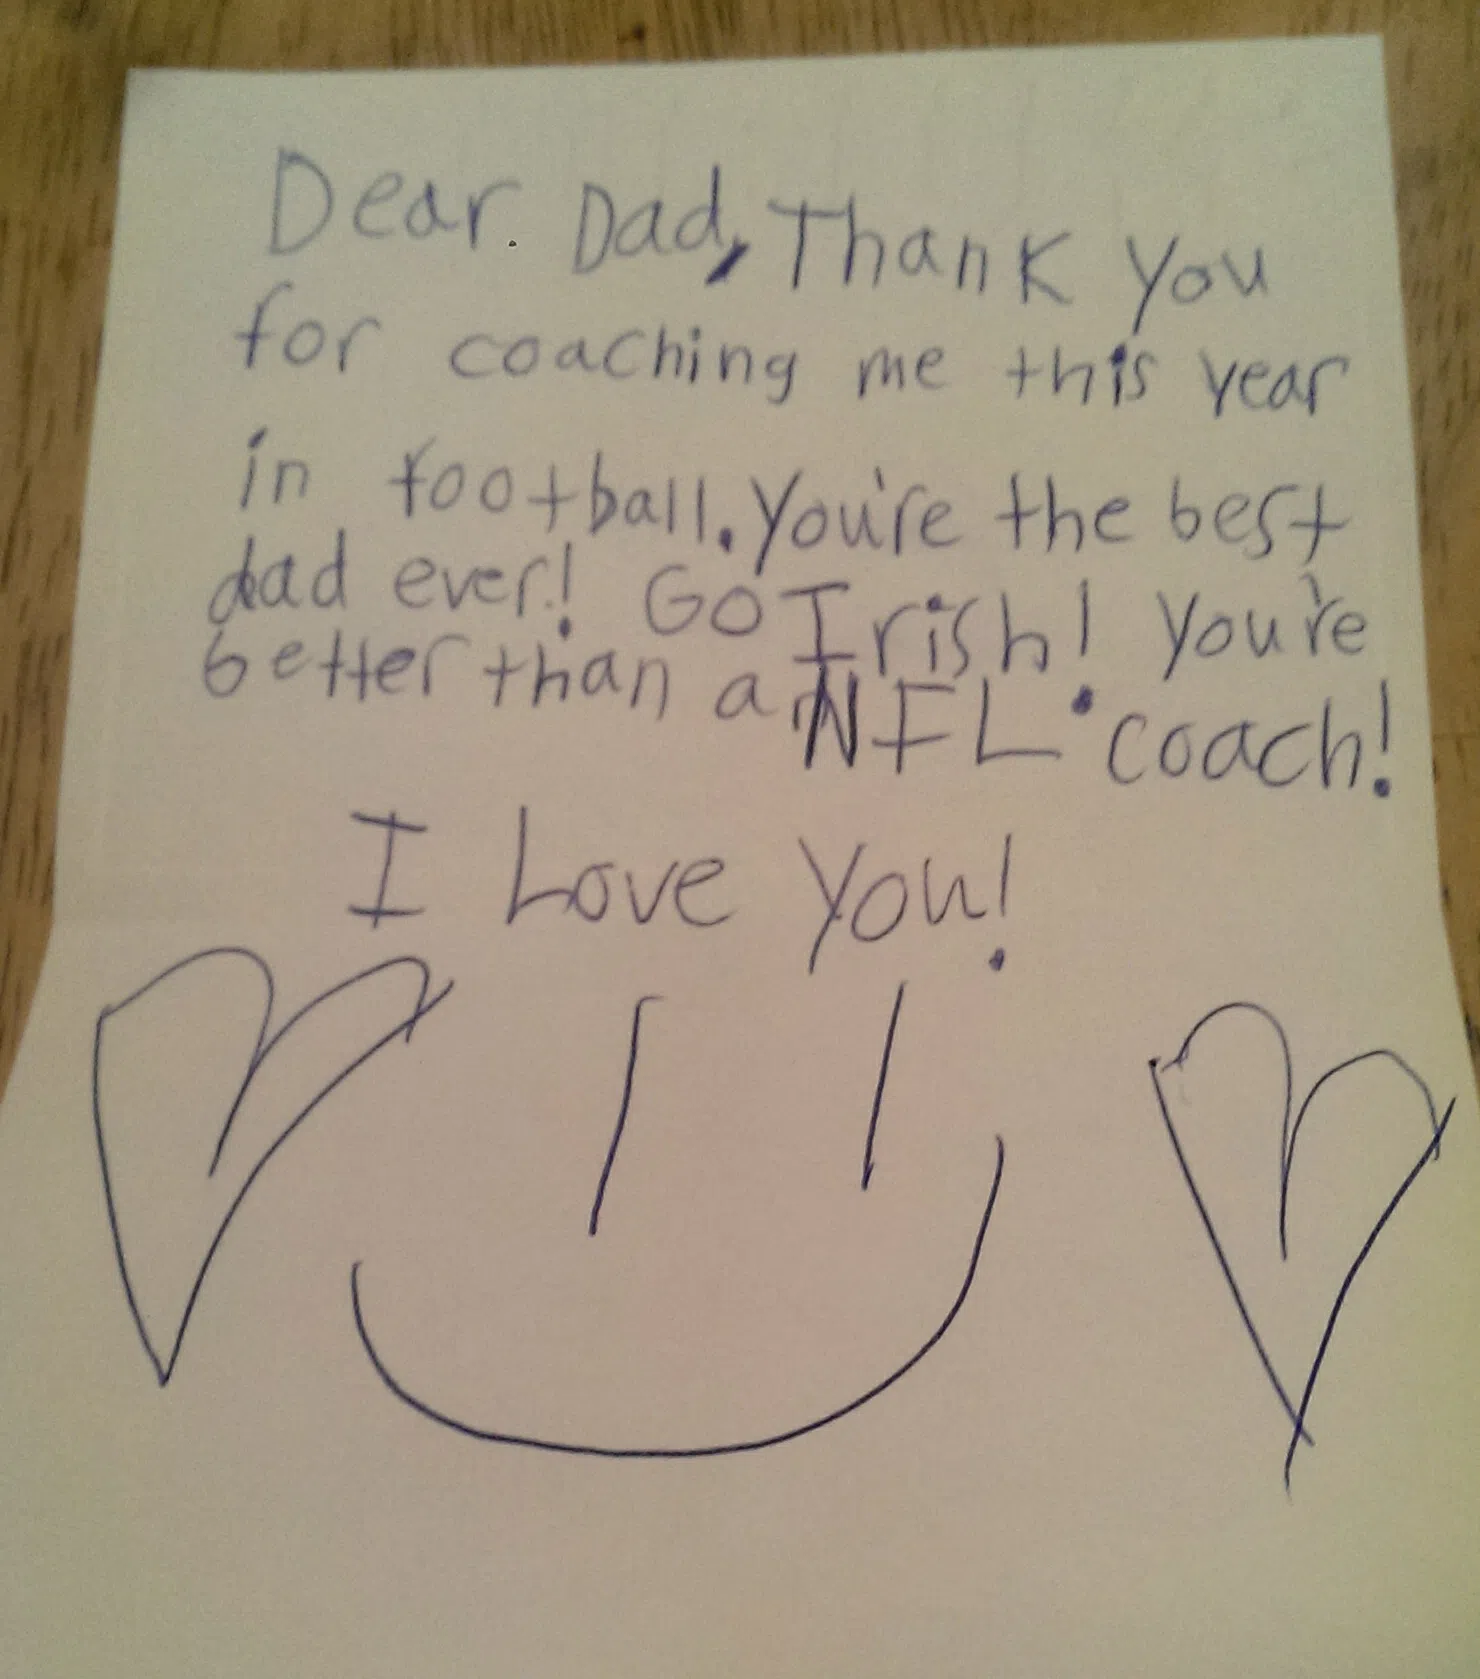 Dear. Dad, Thank you
for coaching me this year
in football. You're the best
dad ever! Go Irish! You're
better than a NFL coach!
I Love You!